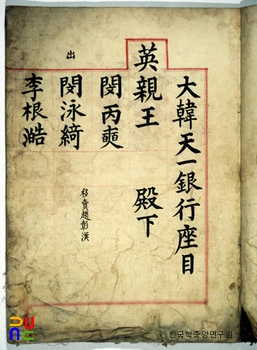 大韓天一銀行座目
英親王 殿下
閔丙奭
出
閔泳綺
移賣趙彰漢
李根澔
한국학중앙연구원